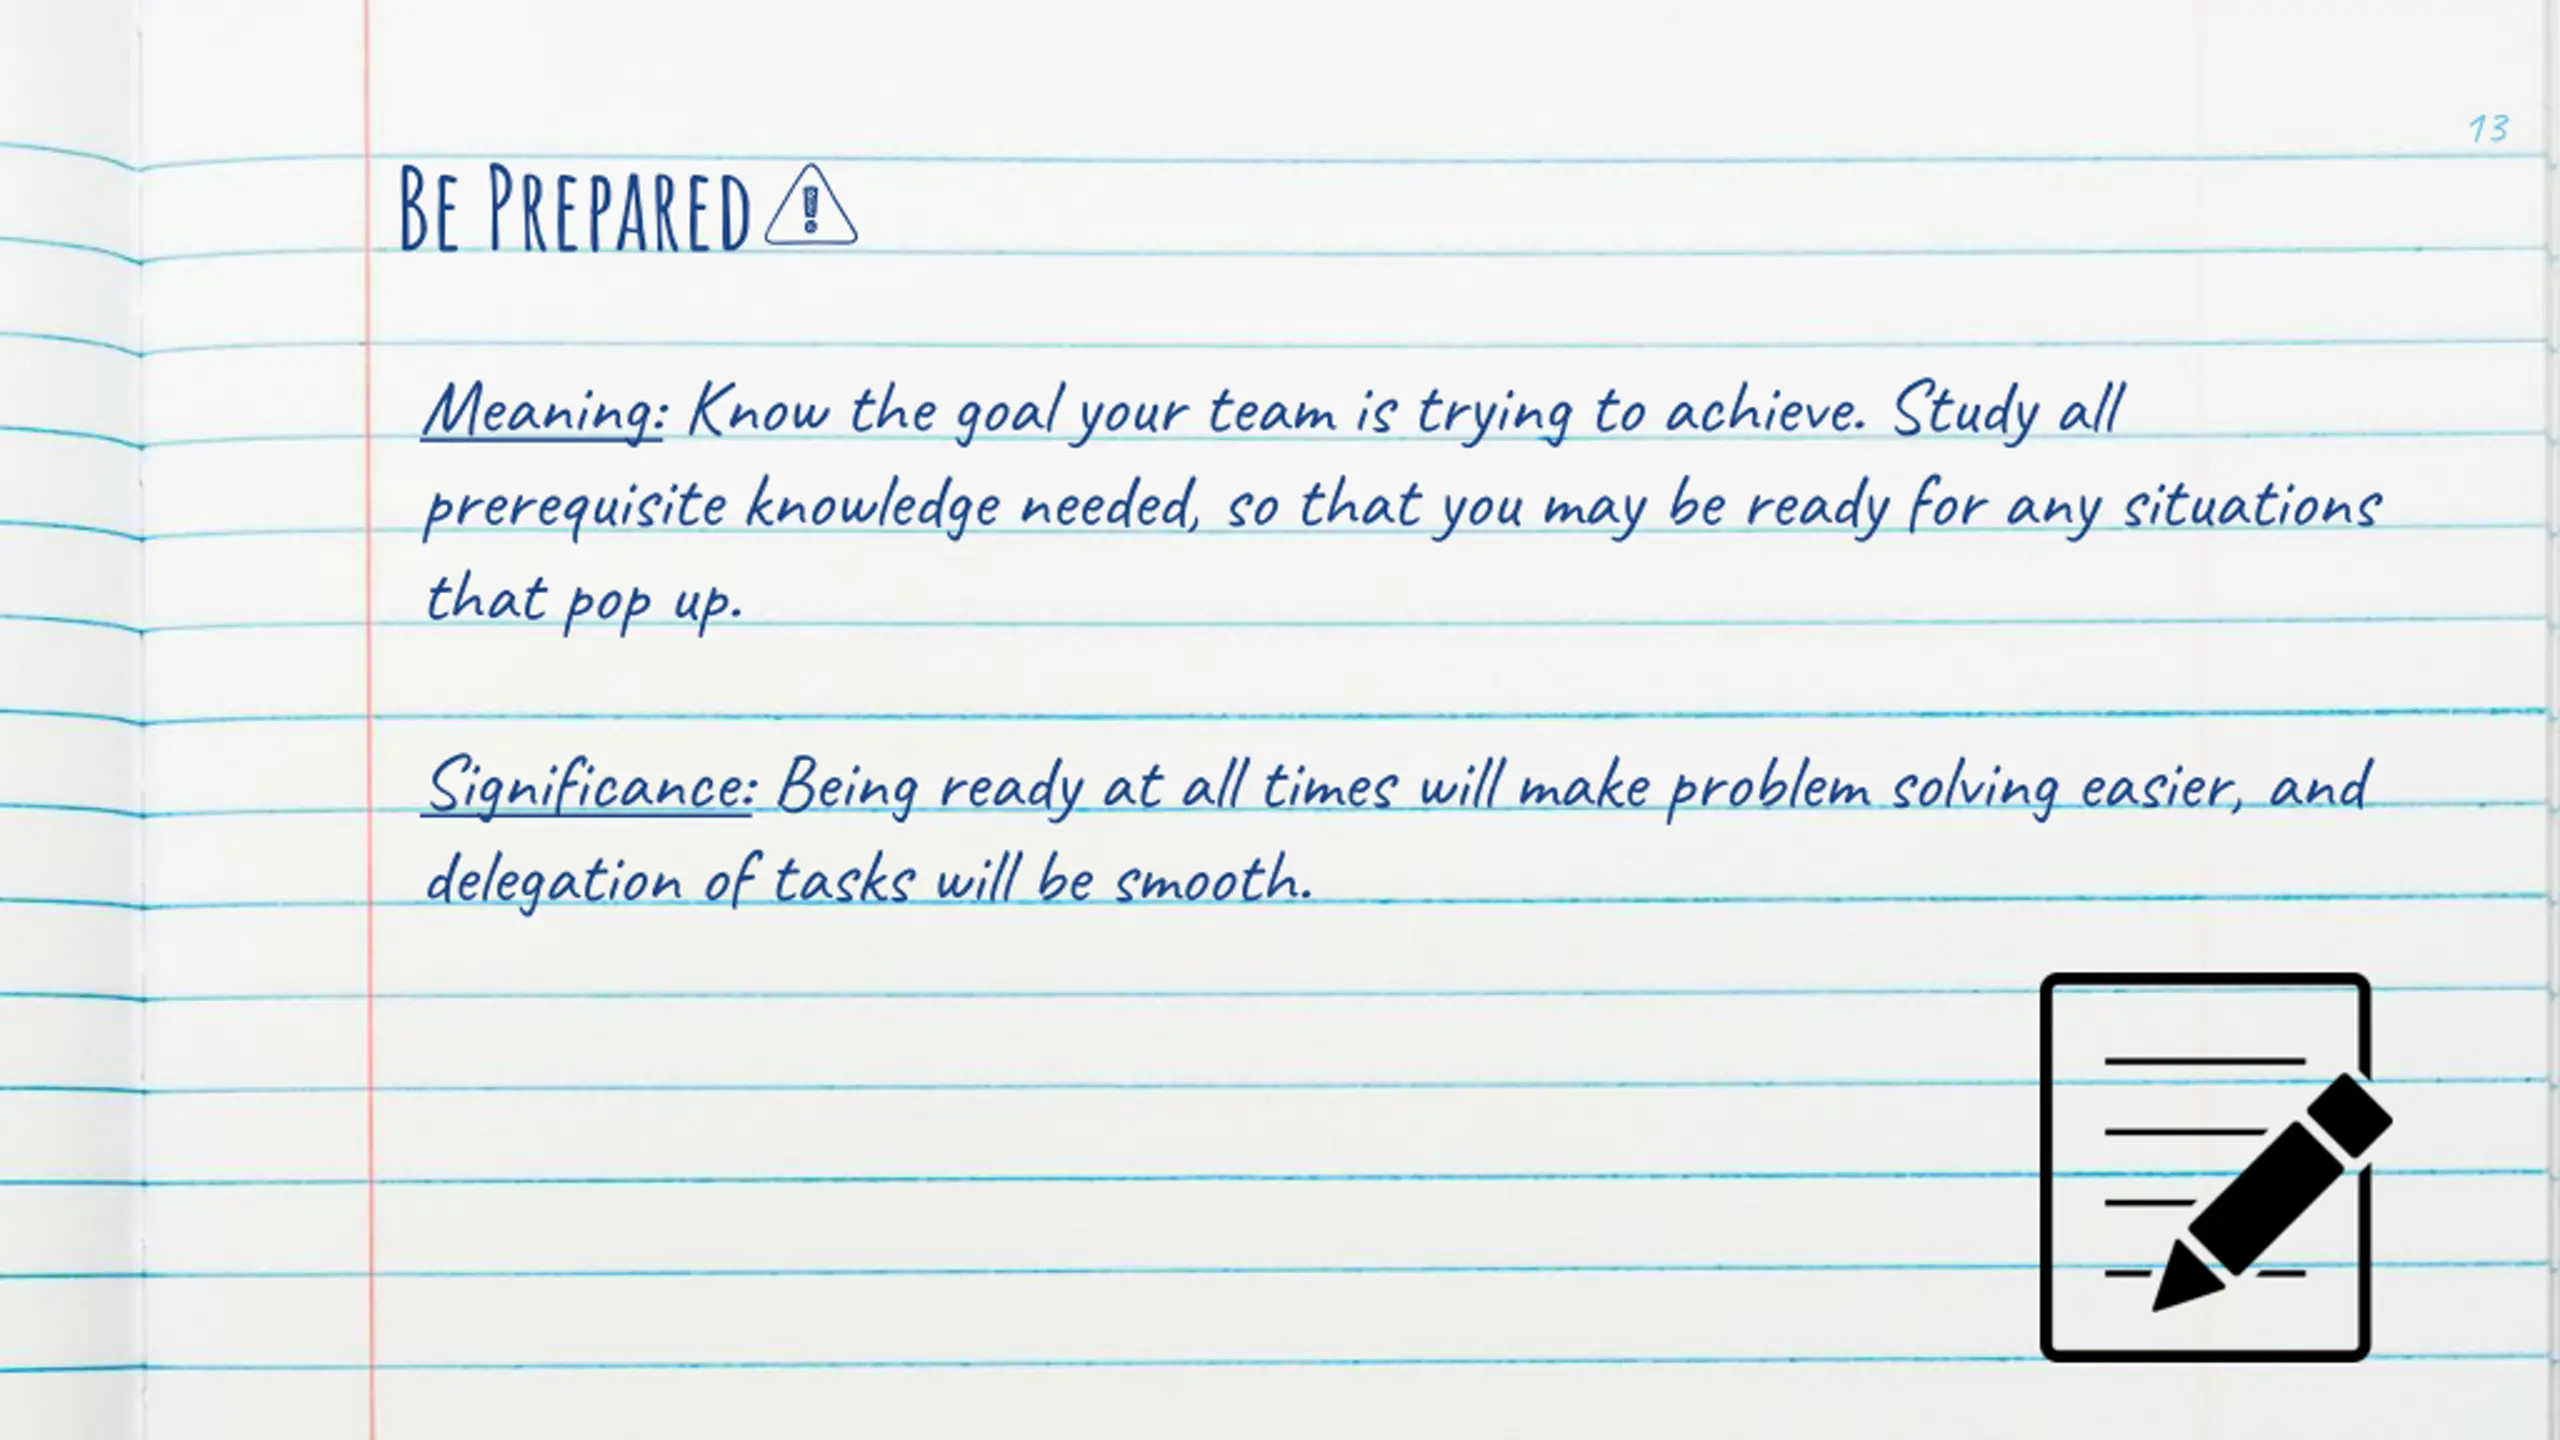 13
BE PREPARED
Meaning: Know the goal your team is trying to achieve. Study all
prerequisite knowledge needed, so that you may be ready for any situations
that pop up.
Significance: Being ready at all times will make problem solving easier, and
delegation of tasks will be smooth.